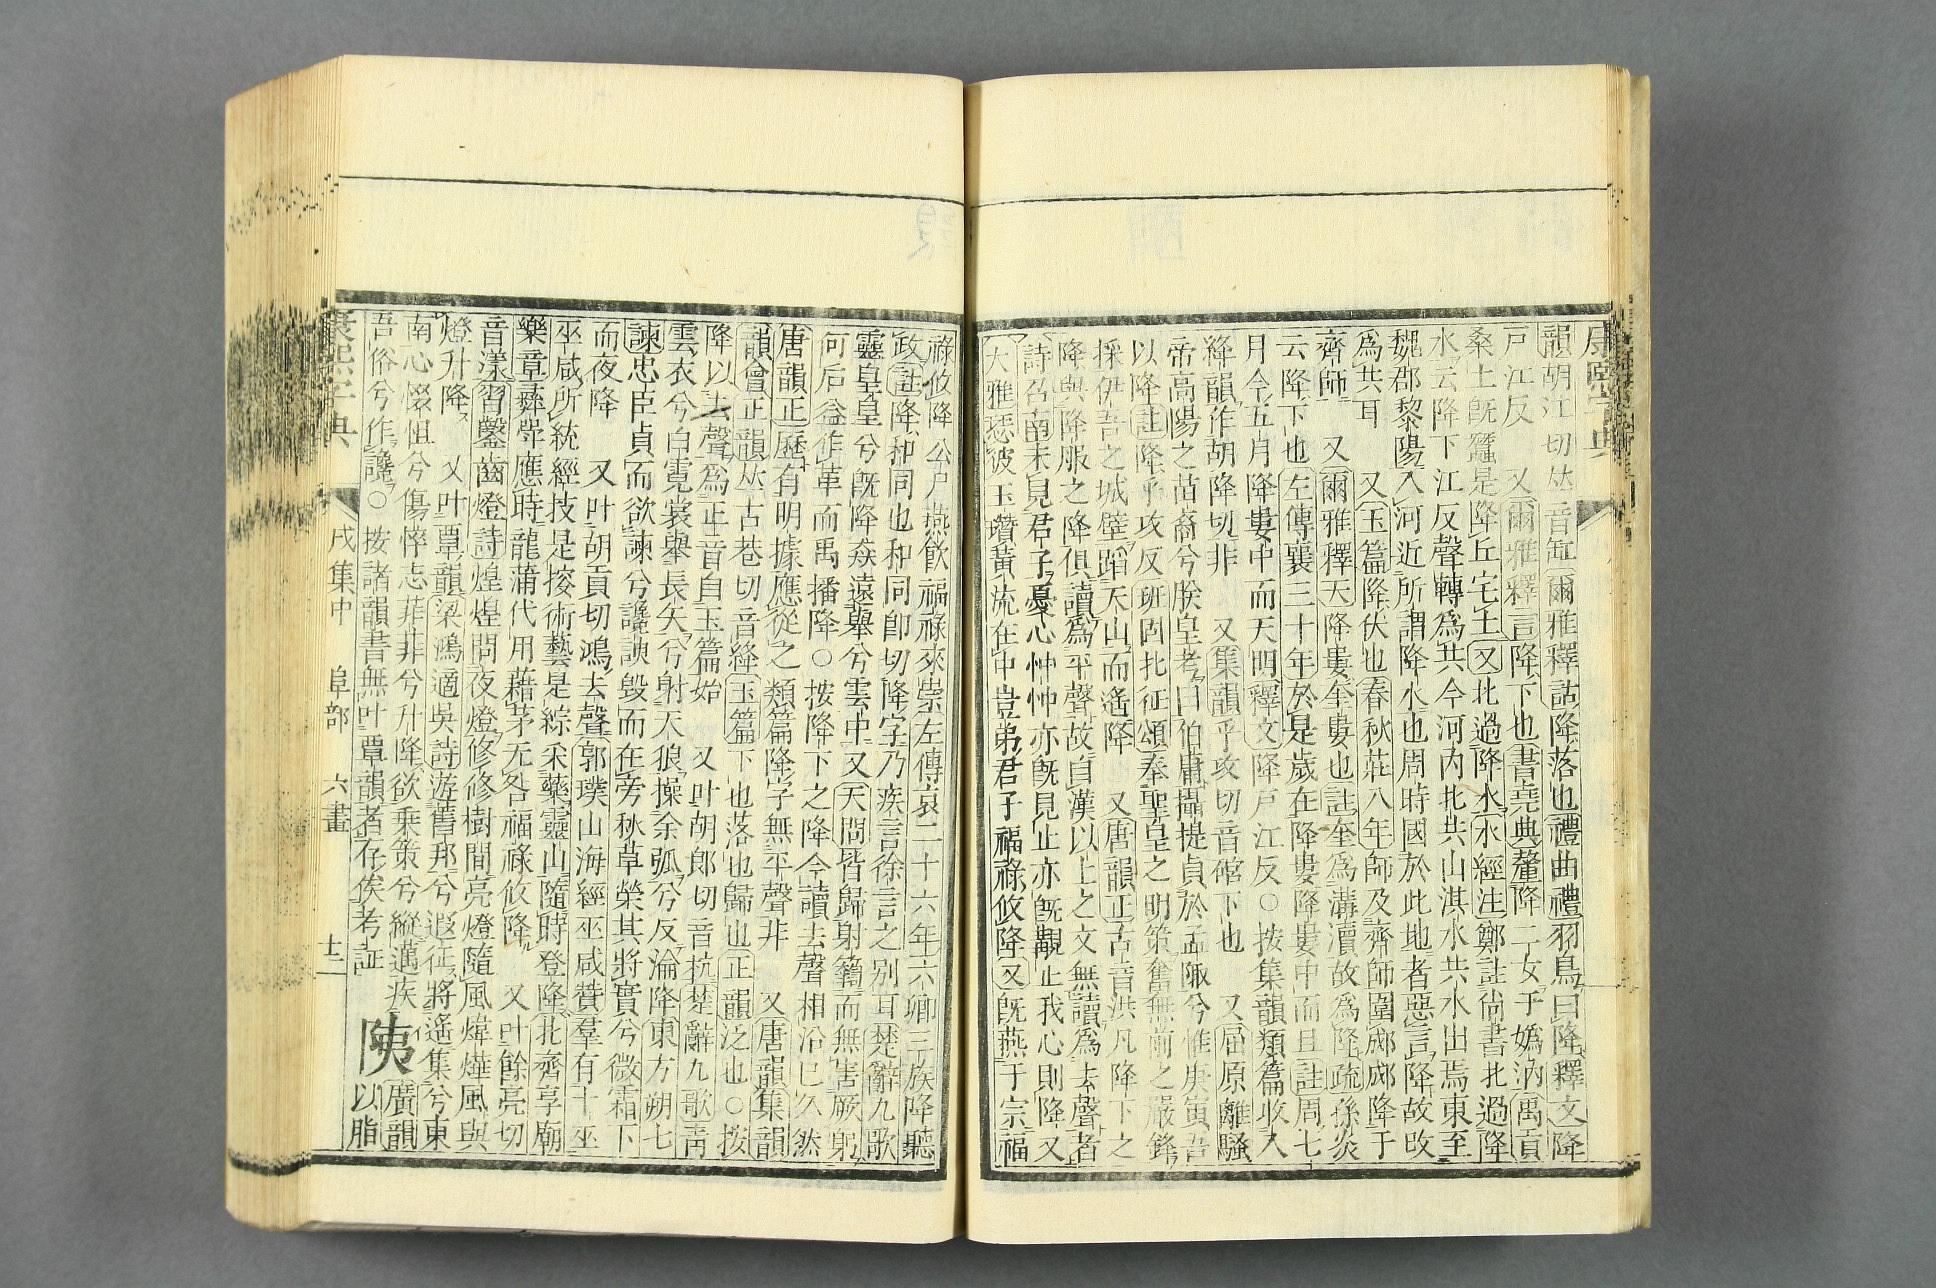 康熙字典
韻胡江切𠀤音缸爾雅釋詁降落也禮曲禮羽鳥曰降釋文降
戸江反 又爾雅釋言降下也書堯典釐降二女于嬀汭禹貢
桑土旣蠶是降丘宅土又北過降水水經注鄭註尙書北過降
水云降下江反聲轉爲共今河內北共山淇水共水出焉東至
魏郡黎陽入河近所謂降水也周時國於此地者惡言降故改
爲共耳 又玉篇降伏也春秋莊八年師及齊師圍郕郕降于
齊師 又爾雅釋天降婁奎婁也註奎爲溝瀆故爲降疏孫炎
云降下也左傳襄三十年於是歲在降婁降婁中而且註周七
月今五月降婁中而天明釋文降戸江反○按集韻類篇收入
絳韻作胡降切非 又集韻乎攻切音䃔下也 又屈原離騷
帝高陽之苗裔兮朕皇考曰伯庸攝提貞於孟陬兮惟庚寅吾
以降註降乎攻反班固北征頌奉聖皇之明策奮無前之嚴鋒
採伊吾之城壁蹈天山而遙降 又唐韻正古音洪凡降下之
降與降服之降俱讀爲平聲故自漢以上之文無讀爲去聲者
詩召南未見君子憂心忡忡亦旣見止亦旣覯止我心則降又
大雅瑟彼玉瓚黃流在中豈弟君子福祿攸降又旣燕于宗福
祿攸降公尸燕飮福祿來崇左傳哀二十六年六卿三族降聽
政註降和同也和同卽切降字乃疾言徐言之別耳楚辭九歌
靈皇皇兮旣降猋遠舉兮雲中又天問皆歸射鞫而無害厥躬
何后益作革而禹播降○按降下之降今讀去聲相沿已久然
唐韻正歷有明據應從之類篇降子無平聲非 又唐韻集韻
韻會正韻𠀤古巷切音絳玉篇下也落也歸也正韻泛也○按
降以去聲爲正音自玉篇始 又叶胡郎切音杭楚辭九歌靑
雲衣兮白霓裳舉長矢兮射天狼操余弧兮反淪降東方朔七
諫忠臣貞而欲諫兮讒諛毀而在旁秋草榮其將實兮微霜下
而夜降 又叶胡貢切鴻去聲郭璞山海經巫咸贊羣有十巫
巫咸所統經技是搜術藝是綜采藥靈山隨時登降北齊享廟
樂章彝斝應時龍蒲代用藉茅无咎福祿攸降 又叶餘亮切
音漾習鑿齒燈詩煌煌閒夜燈修修樹間亮燈隨風煒燁風與
燈升降 又叶覃韻梁鴻適吳詩遊舊邦兮遐征將遙集兮東
南心惙怛兮傷悴志菲菲兮升降欲乗策兮縱邁疾
吾俗兮作讒○按諸韻書無叶覃韻者存俟考証 䧅 廣韻以脂
康熙字典 戌集中 阜部 六畫 十二